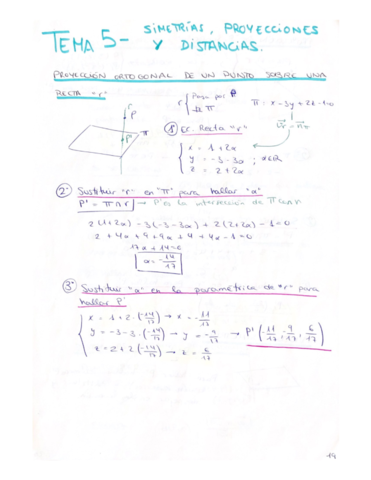 TEMA 5- SIMETRÍAS, PROYECCIONES
Y DISTANCIAS.
PROYECCIÓN ORTOGONAL DE UN PUNTO SOBRE UNA
RECTA "r"
r
P
P'
π
r { Pasa por P
π: x-3y+2z-1=0
1º Ec. Recta "r"
x = 1+2α
y = -3-3α ; α∈R
z = 2+2α
2º Sustituir "r" en "π" para hallar "α"
P' = π∩r → P' es la intersección de π con r
2(1+2α)-3(-3-3α)+2(2+2α)-1=0
2+4α+9+9α+4+4α-1=0
17α+14=0
α=-14/17
3º Sustituir "α" en la paramétrica de "r" para
hallar P'
x = 1+2·(-14/17) → x = -11/17
y = -3-3·(-14/17) → y = -9/17
z = 2+2(-14/17) → z = 6/17
→ P'(-11/17, -9/17, 6/17)